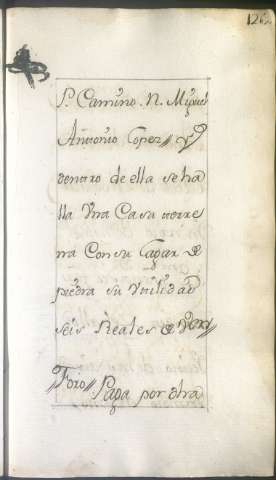 126
P. Camino. N. Miguel
Antonio Lopez // y
dentro de ella se ha
lla Una Casa terre
na Con su Lagar de
piedra su Vtilidad
seis Reales de Von //
Foro // Paga por otra